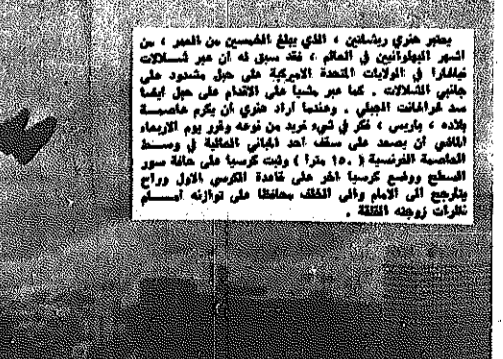 يعتبر هنري ريشاتين ، الذي يبلغ الخمسين من العمر ، من
اشهر البهلوانيين في العالم ، فقد سبق له أن عبر شلالات
نياغارا في الولايات المتحدة الاميركية على حبل مشدود على
جانبي الشلالات . كما عبر مشيا على الاقدام على حبل ايضا
سد غرانجانت الجبلي . وعندما أراد هنري أن يكرم عاصمة
بلاده ، باريس ، فكر في شيء فريد من نوعه وقرر يوم الاربعاء
الماضي أن يصعد على سقف أحد المباني العالية في وسط
العاصمة الفرنسية ( ١٥٠ مترا ) وثبت كرسيا على حافة سور
السطح ووضع كرسيا آخر على قاعدة الكرسي الاول وراح
يتارجح الى الامام والى الخلف محافظا على توازنه أمام
نظرات زوجته القلقة .